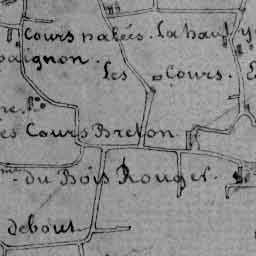 Cours nakés. la haut
paignon.
les Cours.
es Cours Breton
du Bois Rouget.
debout